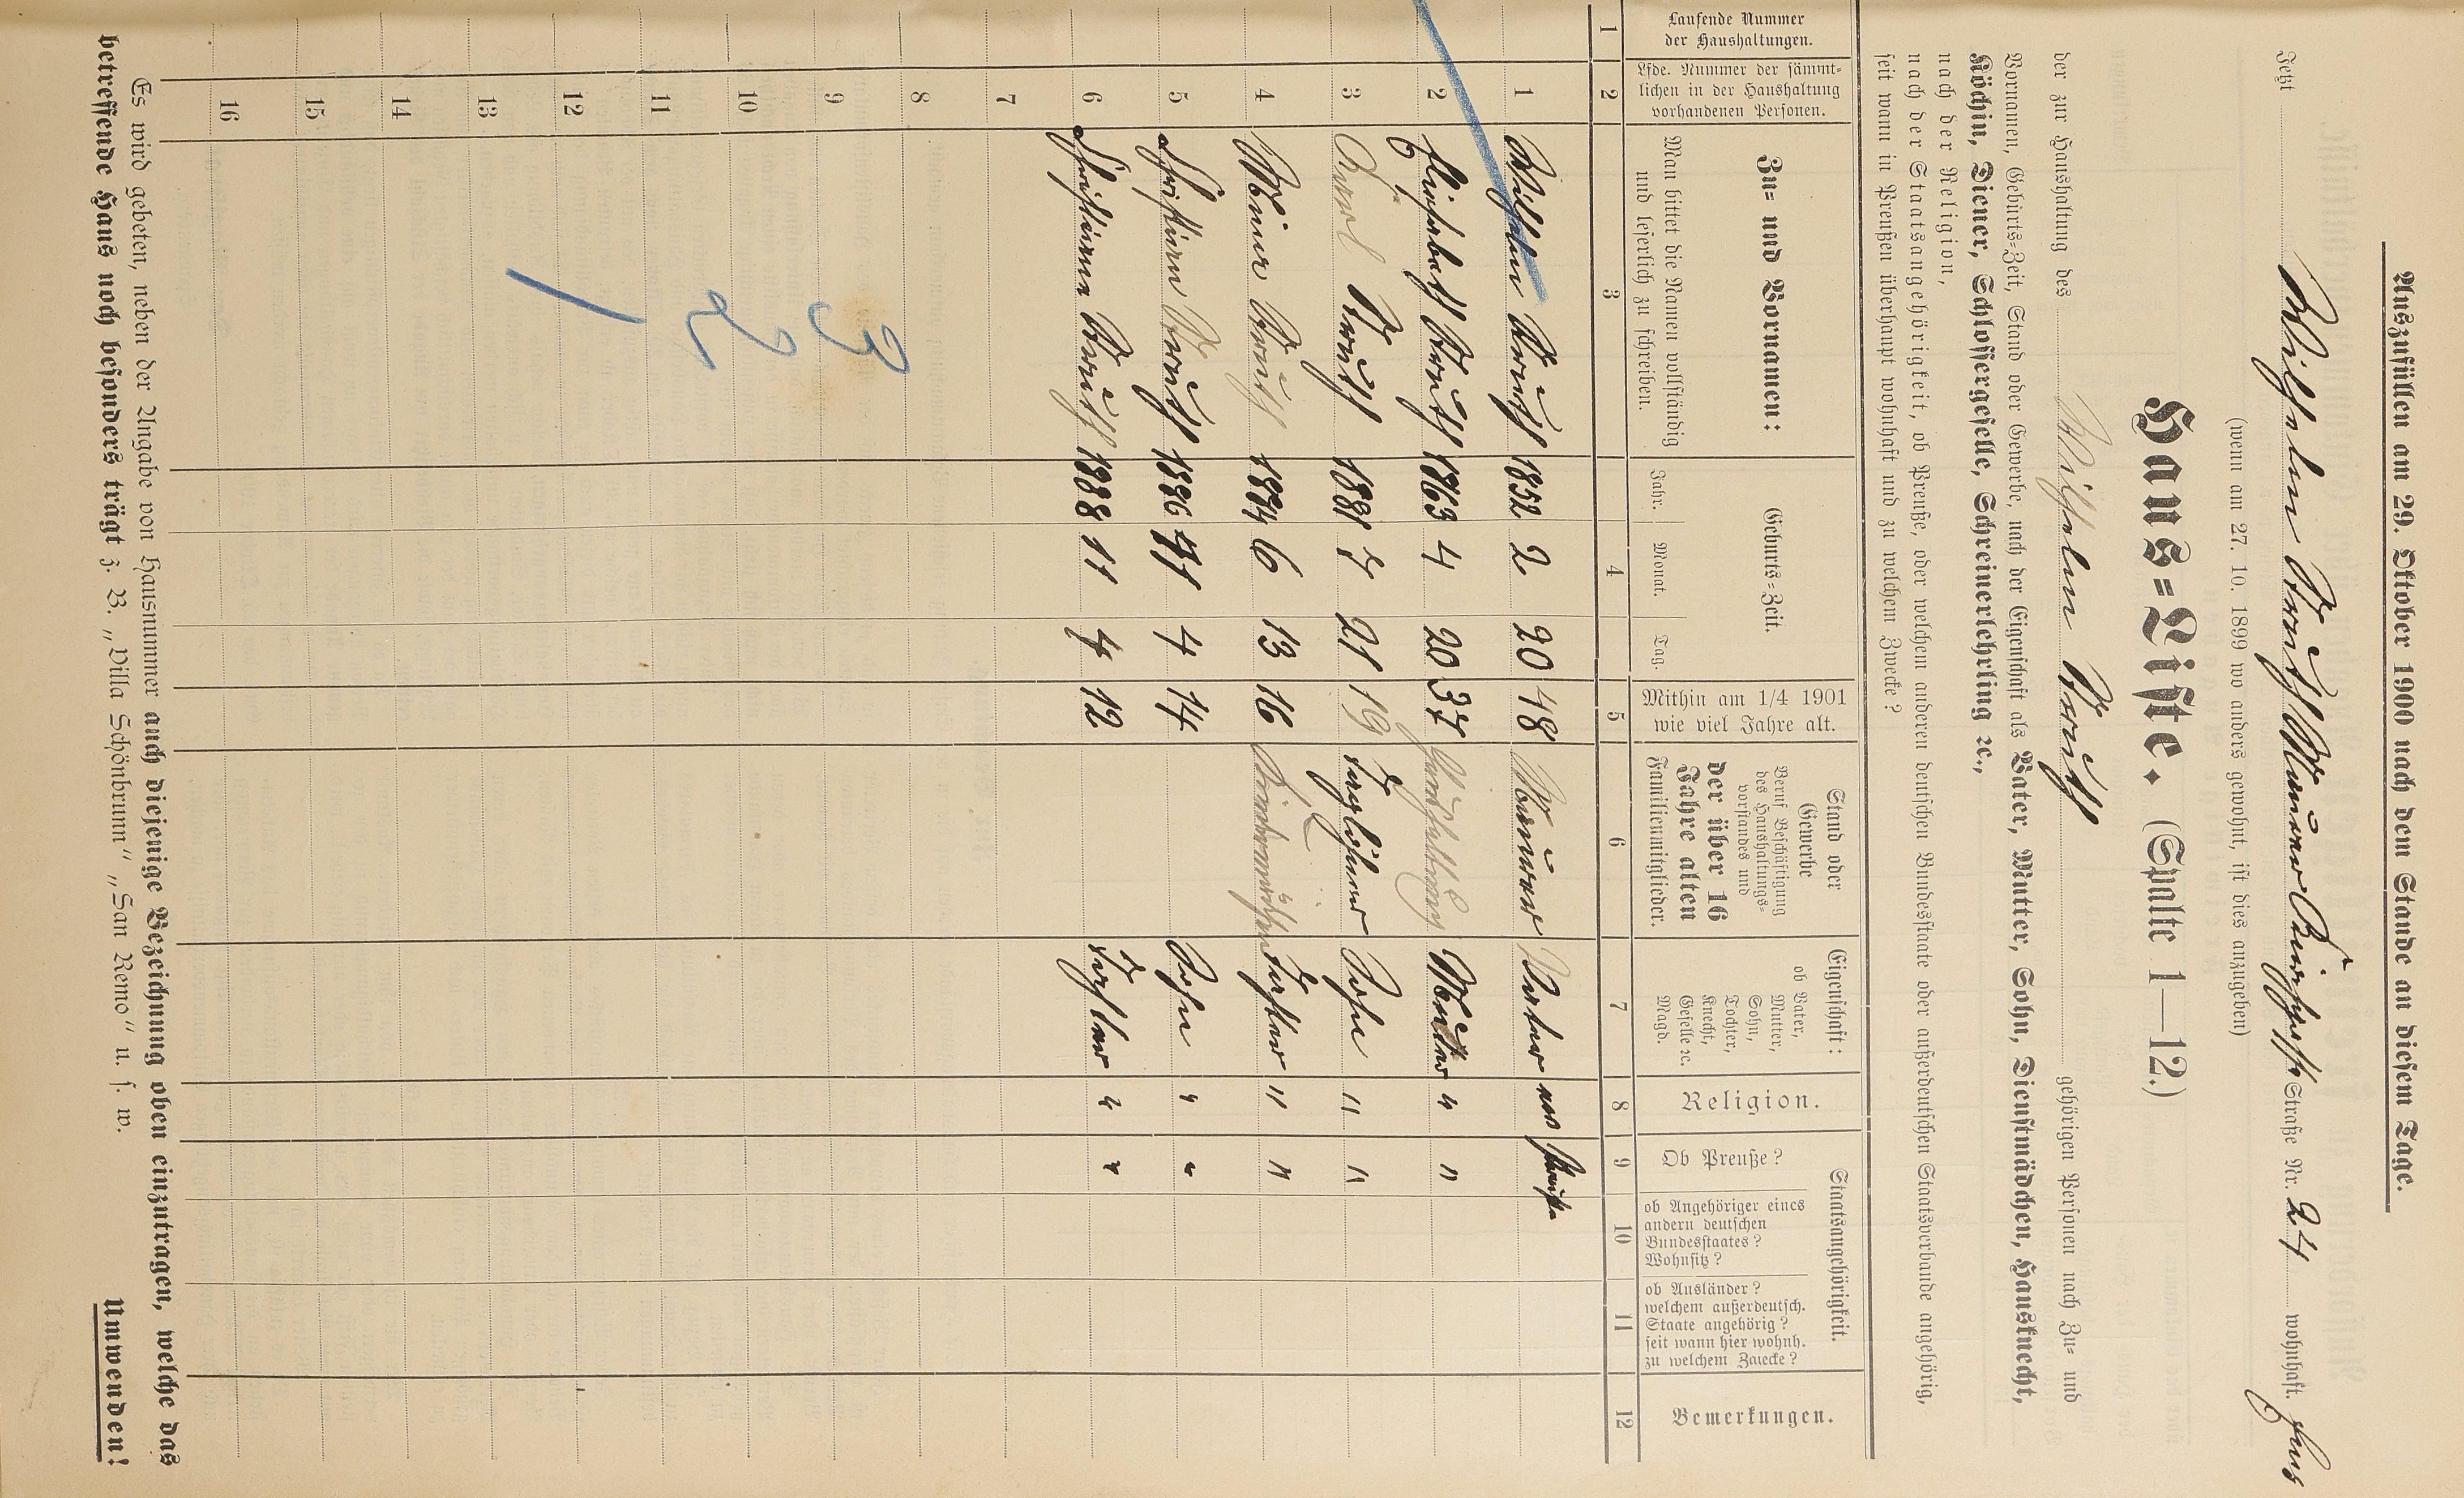 Auszufüllen am 29. Oktober 1900 nach dem Stande an diesem Tage.
Jetzt Wilhelm Straße Nr. 24 wohnhaft.
(wenn an 27. 10. 1899 wo anders gewohnt, ist dies anzugeben)
Haus=Liste. (Spalte 1—12.)
der zur Haushaltung des Wilhelm gehörigen Personen nach Zu= und
Vornamen, Geburts=Zeit, Stand oder Gewerbe, nach der Eigenschaft als Vater, Mutter, Sohn, Dienstmädchen, Hausknecht,
Köchin, Diener, Schlossergeselle, Schreinerlehrling ꝛc.,
nach der Religion,
nach der Staatsangehörigkeit, ob Preuße, oder welchem anderen deutschen Bundesstaate oder außerdeutschen Staatsverbande angehörig,
seit wann in Preußen überhaupt wohnhaft und zu welchem Zwecke?
Laufende Nummer
der Haushaltungen.
Lfde. Nummer der sämmt=
lichen in der Haushaltung
vorhandenen Personen.
Zu= und Vornamen:
Man bittet die Namen vollständig
und leserlich zu schreiben.
Geburts=Zeit.
Jahr. Monat. Tag.
Mithin am 1/4 1901
wie viel Jahre alt.
Stand oder
Gewerbe
Beruf Beschäftigung
des Haushaltungs=
vorstandes und
der über 16
Jahre alten
Familienmitglieder.
Eigenschaft:
ob Vater,
Mutter,
Sohn,
Tochter,
Knecht,
Geselle ꝛc.
Magd.
Religion.
Staatsangehörigkeit.
Ob Preuße?
ob Angehöriger eines
andern deutschen
Bundesstaates?
Wohnsitz?
ob Ausländer?
welchem außerdeutsch.
Staate angehörig?
seit wann hier wohnh.
zu welchem Zwecke?
Bemerkungen.
1 2 3 4 5 6 7 8 9 10 11 12
1 Wilhelm 1852 2 20 48 Maurer Vater
2 Elisabeth 1863 4 20 37 Mutter " "
3 Karl 1881 21 19 Taglöhner Sohn " "
4 Minna 1884 6 13 16 Tochter " "
5 1886 4 14 Sohn " "
6 1888 11 4 12 Tochter " "
7
8
9
10
11
12
13
14
15
16
3
2
1
Es wird gebeten, neben der Angabe von Hausnummer auch diejenige Bezeichnung oben einzutragen, welche das
betreffende Haus noch besonders trägt z. B. „Villa Schönbrunn" „San Remo" u. s. w.
Umwenden!